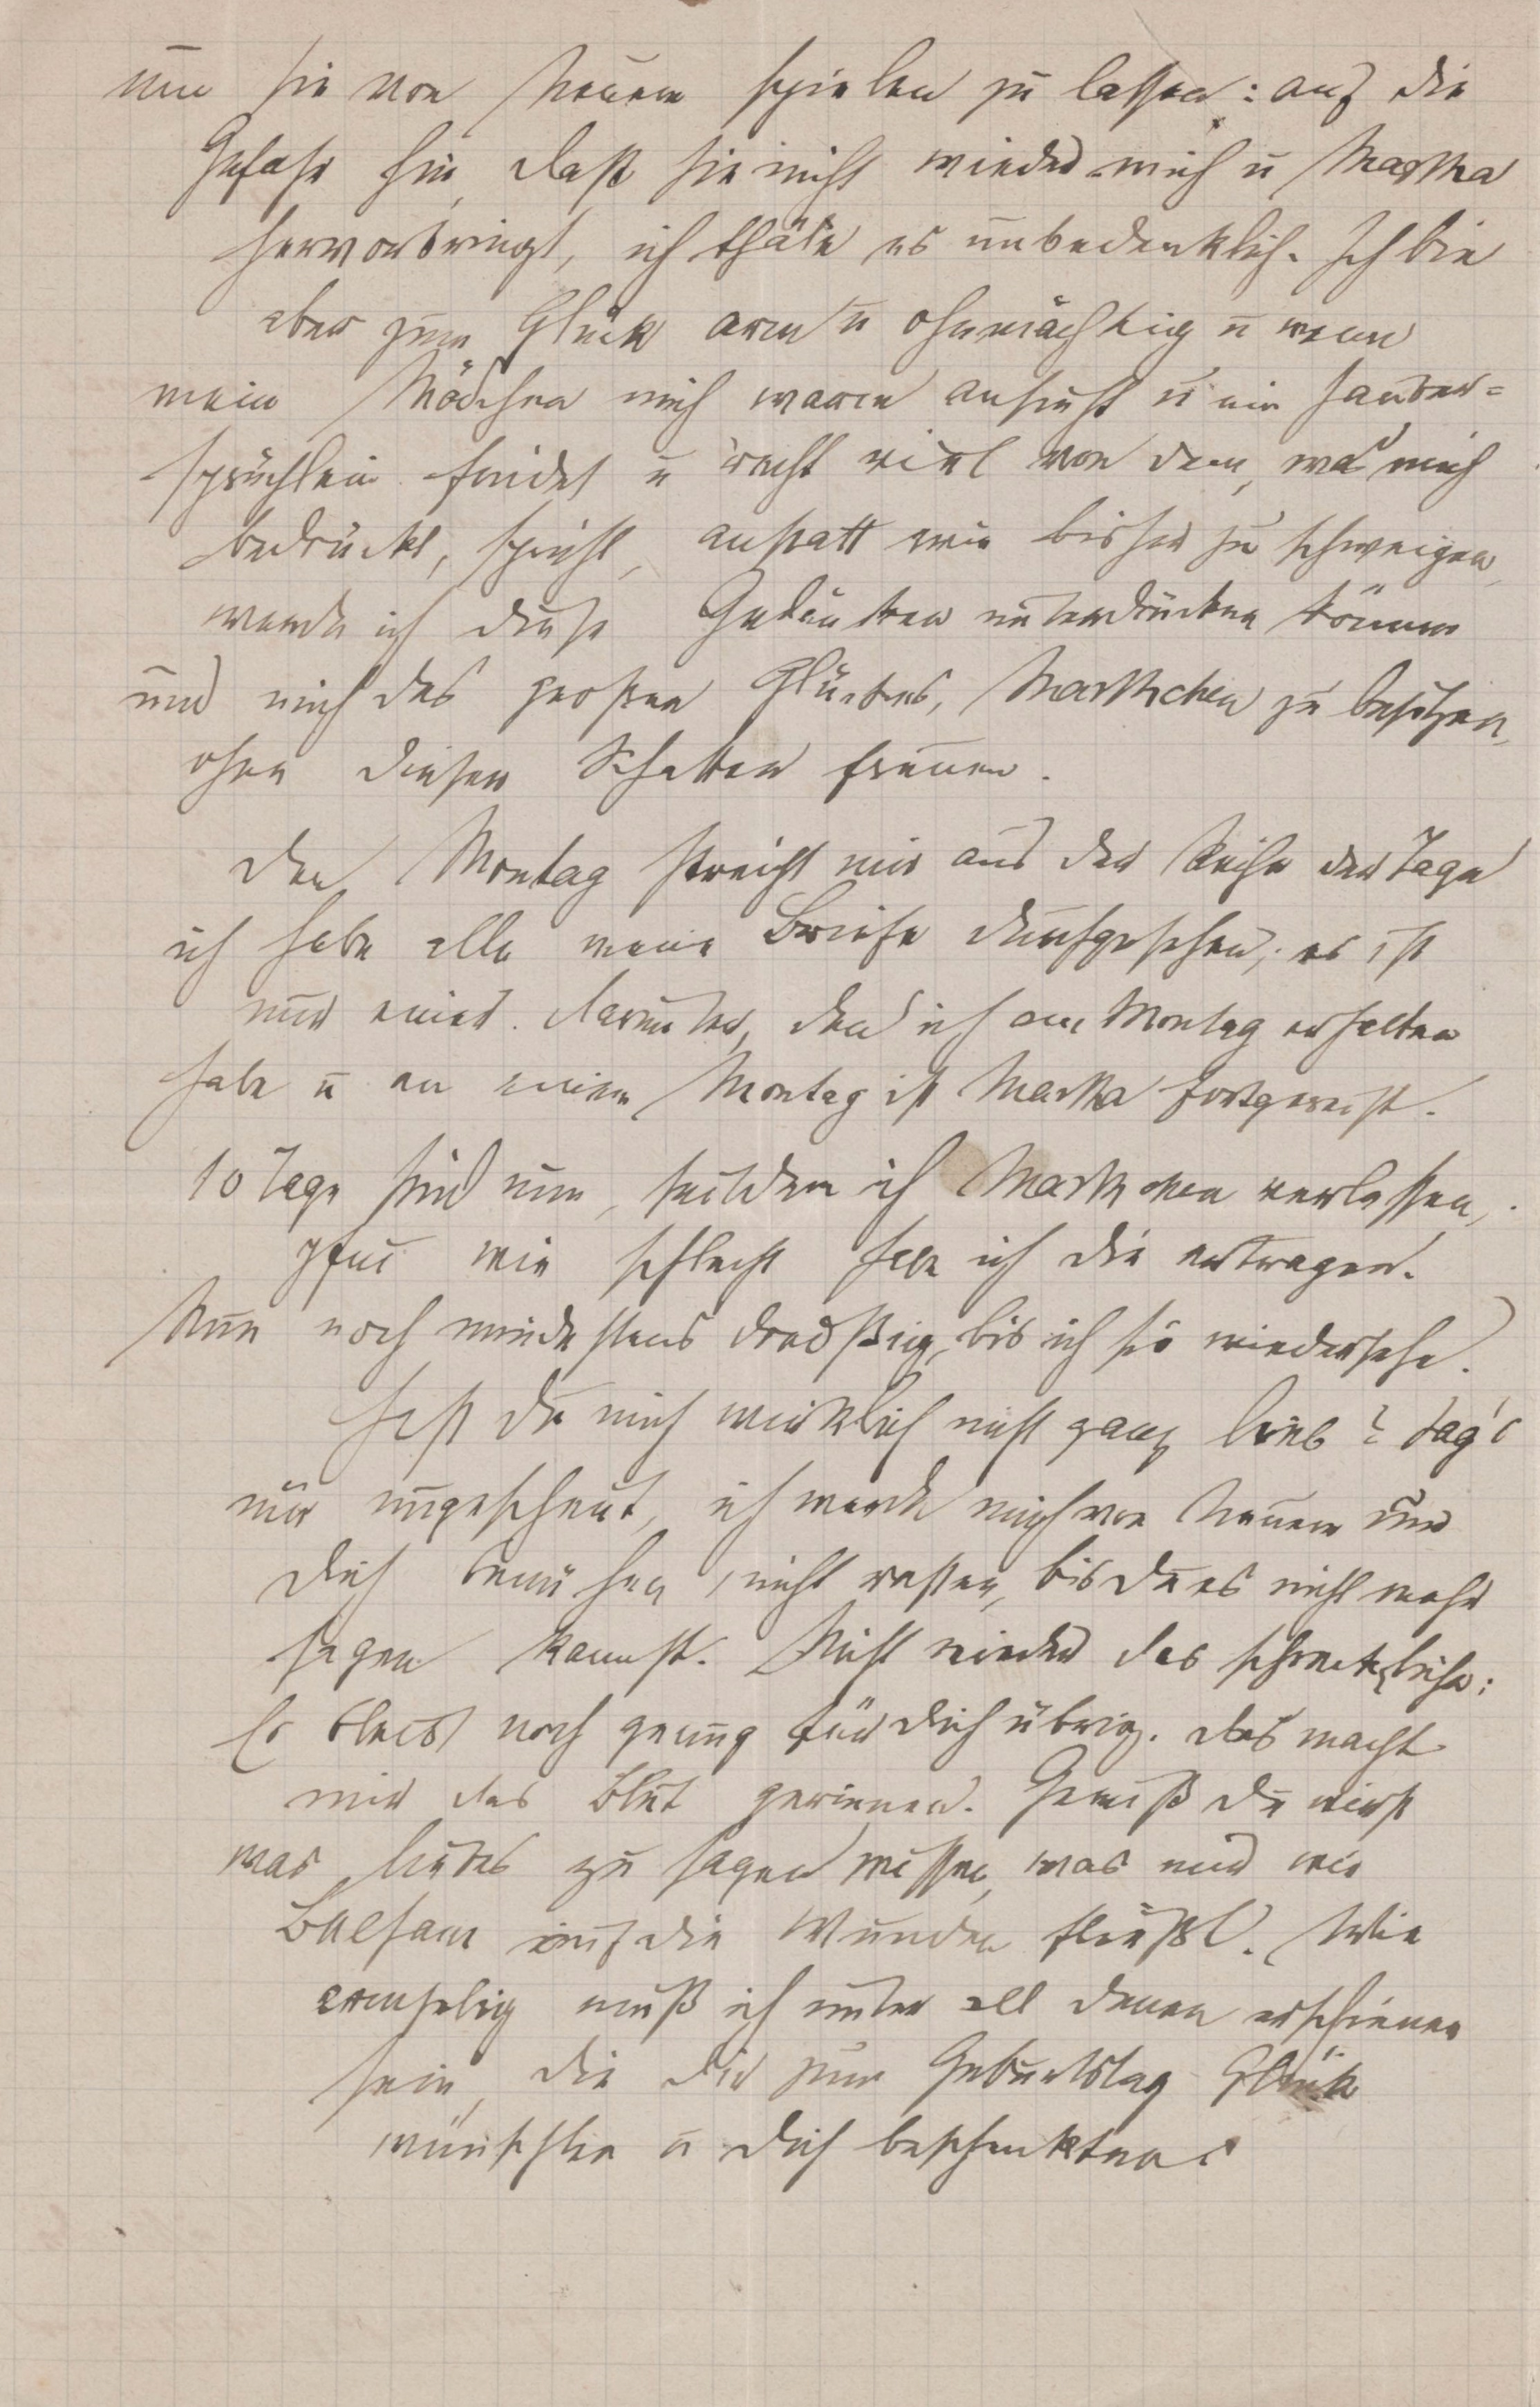 um sie von Neuem spielen zu lassen: auf die
Gefahr hin, daß sie nicht wieder mich u Martha
hervorbringt, ich thäte es unbedenklich. Ich bin
aber zum Glück arm u ohnmächtig u wenn
mein Mädchen mich warm ansieht u ein Zauber=
sprüchlein findet u recht viel von dem, was mich
bedrückt, spricht, anstatt wie bisher zu schweigen,
werde ich diese Gedanken unterdrücken können
und mich des großen Glückes, Marthchen zu besitzen,
ohne diesen Schatten freuen.
Den Montag streicht mir aus der Reihe der Tage
ich habe alle meine Briefe durchgesehen, es ist
nur einer darunter, den ich am Montag erhalten
habe u an einem Montag ist Martha fortgereist.
10 Tage sind nun, seitdem ich Marthchen verlassen,
pfui wie schlecht habe ich die ertragen.
Nun noch mindestens dreißig, bis ich sie wiedersehe.
Hast du mich wirklich nicht ganz lieb? Sag's
nur ungescheut, ich werde mich von Neuem um
dich bemühen, nicht rasten, bis du es nicht mehr
sagen kannst. Nicht wieder das schreckliche:
Es bleibt noch genug für dich übrig. das macht
mir das Blut gerinnen. Gewiß du wirst
was Gutes zu sagen wissen, was mir wie
Balsam auf die Wunden fließt. Wie
armselig muß ich unter all denen erschienen
sein, die dir zum Geburtstag Glück
wünschten u dich beschenkten.